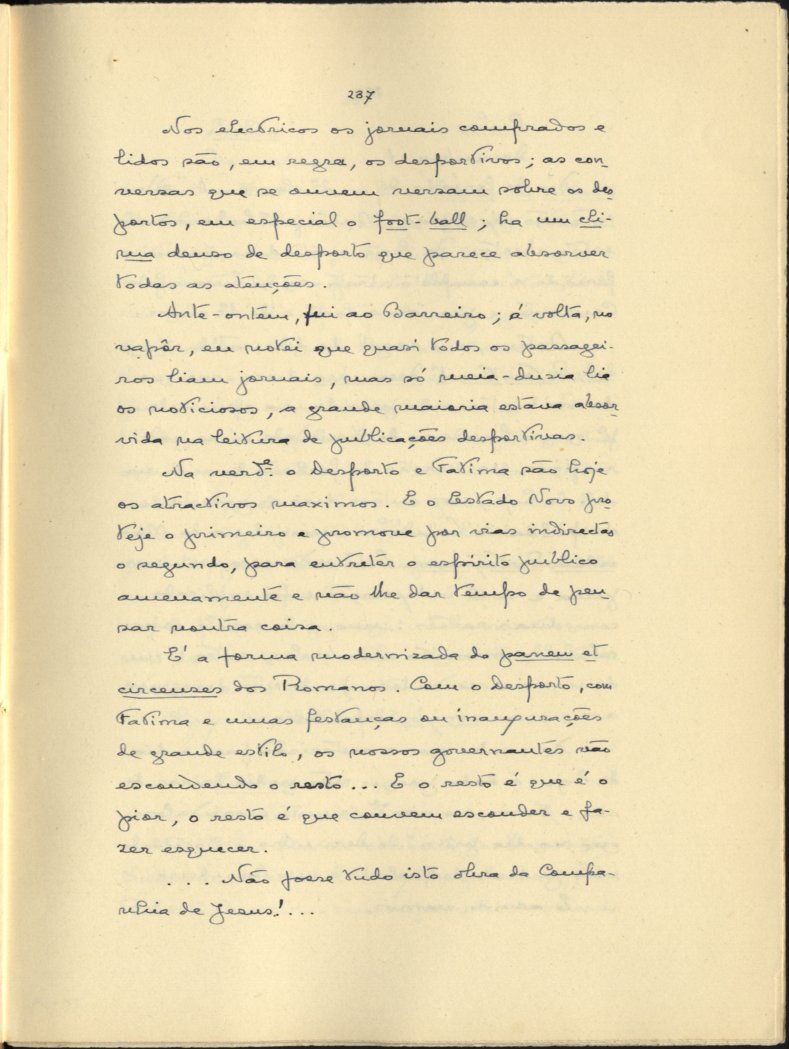 237
Nos electricos os jornais comprados e
lidos são, em regra, os desportivos; as con-
versas que se ouvem versam sobre os des-
portos, em especial o foot-ball; ha um cli-
ma denso de desporto que parece absorver
todas as atenções.
Ante-ontem, fui ao Barreiro; á volta, no
vapôr, eu notei que quasi todos os passagei-
ros liam jornais, mas só meia-dusia lia
os noticiosos, a grande maioria estava absor-
vida na leitura de publicações desportivas.
Na verd.e o Desporto e Fatima são hoje
os atractivos maximos. E o Estado Novo pro-
teje o primeiro e promove por vias indirectas
o segundo, para entretêr o espírito publico
amenamente e não lhe dar tempo de pen-
sar noutra coisa.
E' a forma modernizada do panem et
circenses dos Romanos. Com o Desporto, com
Fatima e umas festanças ou inaugurações
de grande estilo, os nossos governantes vão
escondendo o resto... E o resto é que é o
pior, o resto é que convem esconder e fa-
zer esquecer.
... Não fosse tudo isto obra da Compa-
nhia de Jesus!...